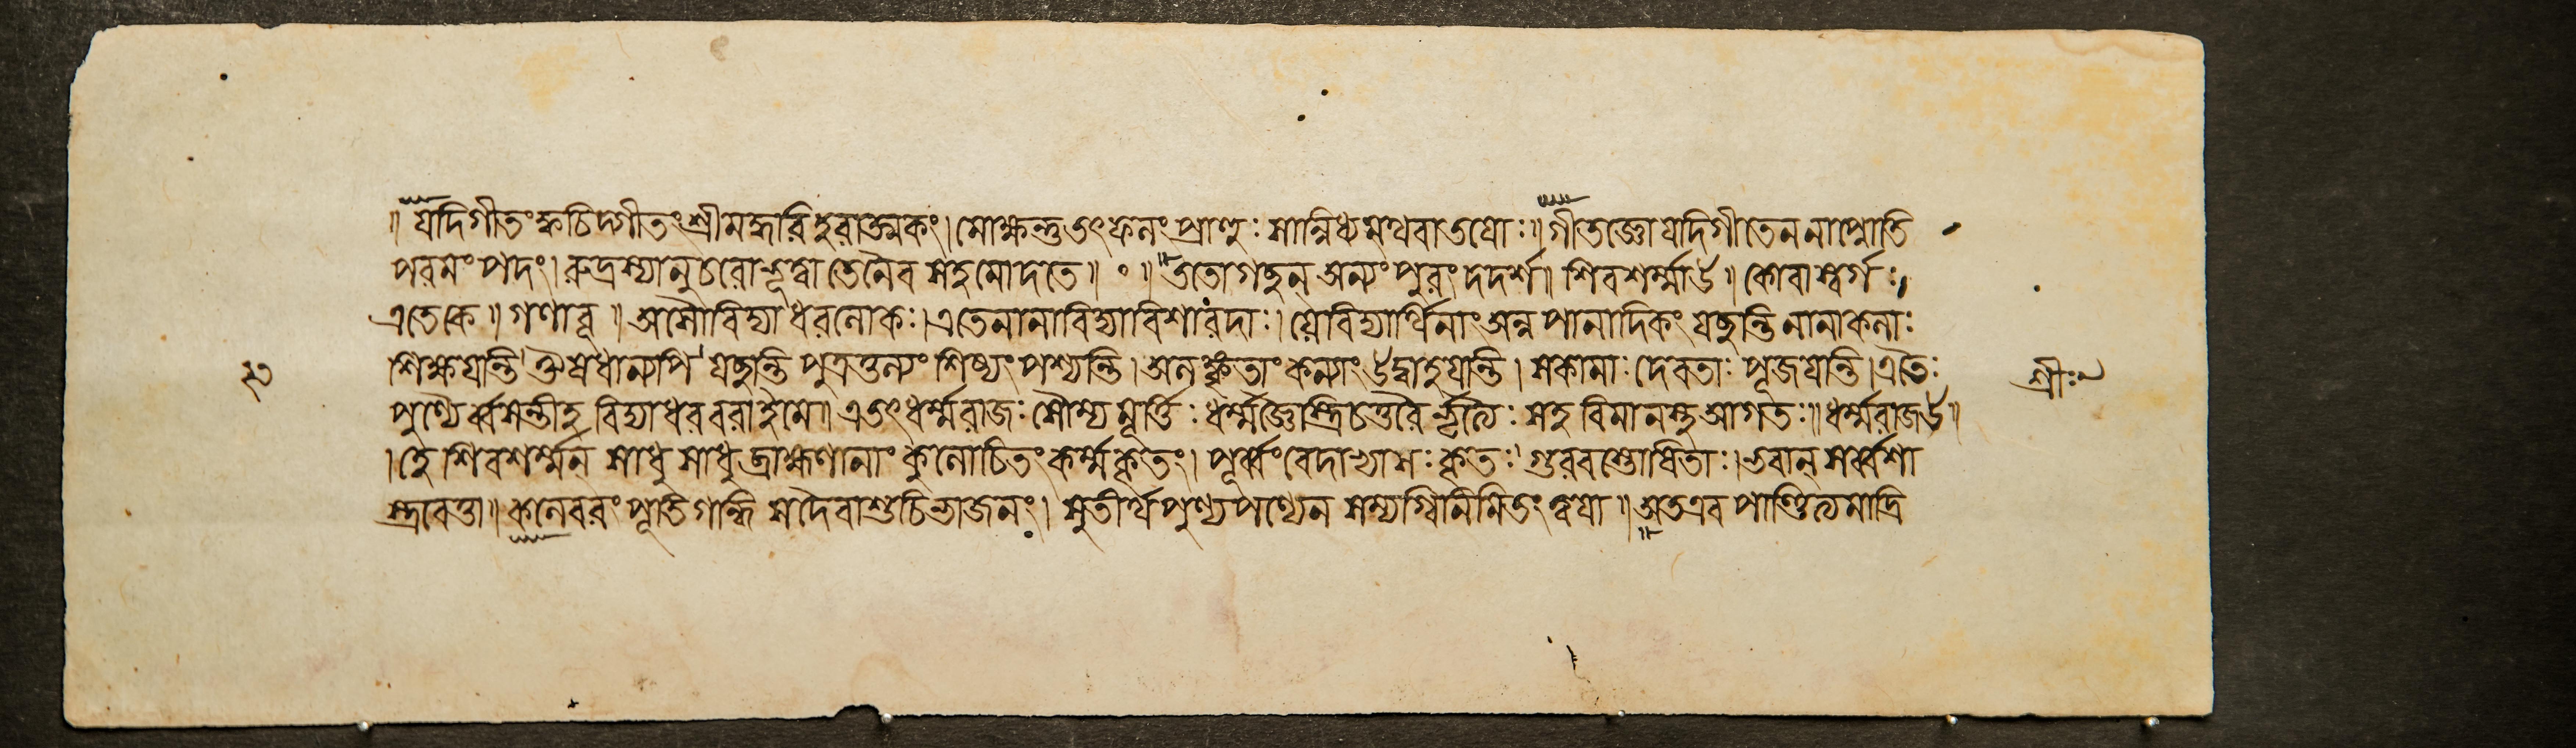 ॥ যদিগীতংক্বচিদ্গীতংশ্রীমদ্ধরিহরাত্মকং।মোক্ষন্তুতৎফলংপ্রাহুঃ সান্নিধ্যমথবাতয়োঃ॥গীতজ্ঞোযদিগীতেননাপ্নোতি
পরমং পদং। রুদ্রস্যানুচরোভূত্বা তেনৈব সহমোদতে॥ ॰ ॥ ততোগছন্ অন্যং পুরং দদর্শ॥ শিবশর্ম্মাউ॥ কোবাস্বর্গঃ
এতেকে॥ গণাবূ ॥ অসৌবিদ্যাধরলোকঃ।এতেনানাবিদ্যাবিশারদাঃ। য়েবিদ্যার্থিনাং অন্ন পানাদিকং যছন্তি নানাকলাঃ
২০ শিক্ষয়ন্তি ঔষধান্যপি যছন্তি পুত্রতুল্যং শিষ্যং পশ্যন্তি। অলঙ্কৃতাং কন্যাং উদ্বাহয়ন্তি। সকামাঃ দেবতাঃ পূজয়ন্তি।এতৈঃ শ্রীঃ
পুণ্যৈর্ব্বসন্তীহ বিদ্যাধরবরাইমে॥ এতৎধর্ম্মরাজঃ সৌম্যমূর্ত্তিঃ ধর্ম্মজ্ঞৈস্ত্রিচতুরৈর্ভৃত্যৈঃ সহ বিমানস্থআগতঃ॥ধর্ম্মরাজউ॥
।হে শিবশর্ম্মন্ সাধু সাধু ব্রাহ্মণানাং কুলোচিতং কর্ম্মকৃতং। পূর্ব্বংবেদাভ্যাসঃ কৃতঃ গুরবস্তোষিতাঃ।ভবান্ সর্ব্বশা
স্ত্রবেত্তা॥কলেবরং পূতিগন্ধি সদৈবাশুচিভাজনং। সুতীর্থপুণ্যপণ্যেন সম্যগ্বিনিমিতং ত্বয়া॥অতএব পাণ্ডিত্যমাদ্রি